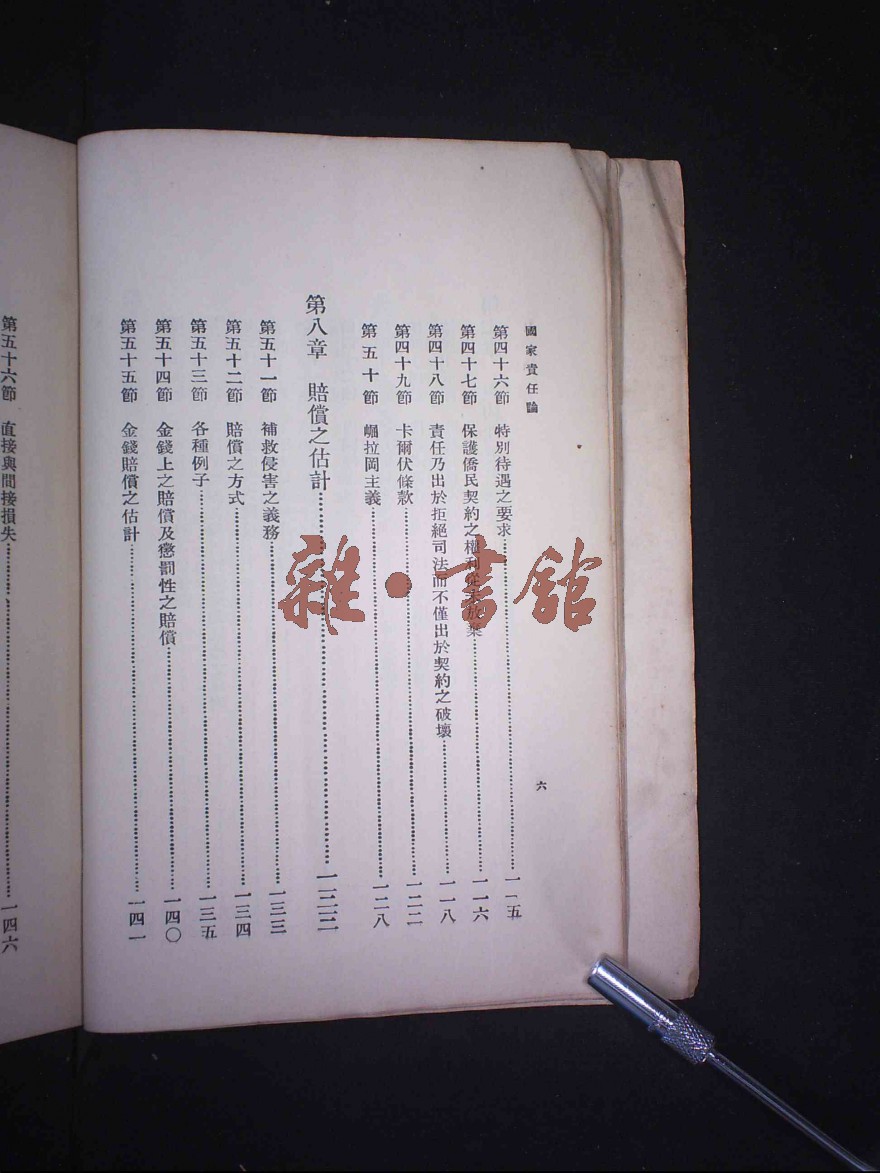 國家責任論
六
第四十六節 特別待遇之要求……一一五
第四十七節 保護僑民契約之權利從未放棄……一一六
第四十八節 責任乃出於拒絕司法而不僅出於契約之破壞……一一八
第四十九節 卡爾伏條款……一二二
第五十節 崛拉岡主義……一二八
第八章 賠償之估計……一三三
第五十一節 補救侵害之義務……一三三
第五十二節 賠償之方式……一三四
第五十三節 各種例子……一三五
第五十四節 金錢上之賠償及懲罰性之賠償……一四〇
第五十五節 金錢賠償之估計……一四一
第五十六節 直接與間接損失……一四六
雜·書館